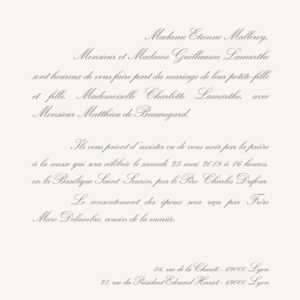 Madame Etienne Malleroy,
Monsieur et Madame Guillaume Lamarthe
sont heureux de vous faire part du mariage de leur petite-fille
et fille, Mademoiselle Charlotte Lamarthe, avec
Monsieur Matthieu de Beauregard.
Ils vous prient d'assister ou de vous unir par la prière
à la messe qui sera célébrée le samedi 25 mai 2018 à 16 heures,
en la Basilique Saint-Seurin, par le Père Charles Dufour.
Le consentement des époux sera reçu par Frère
Marc Delambre, cousin de la mariée.
34, rue de la Charité - 69000 Lyon
27, rue du Président Edouard Herriot - 69000 Lyon